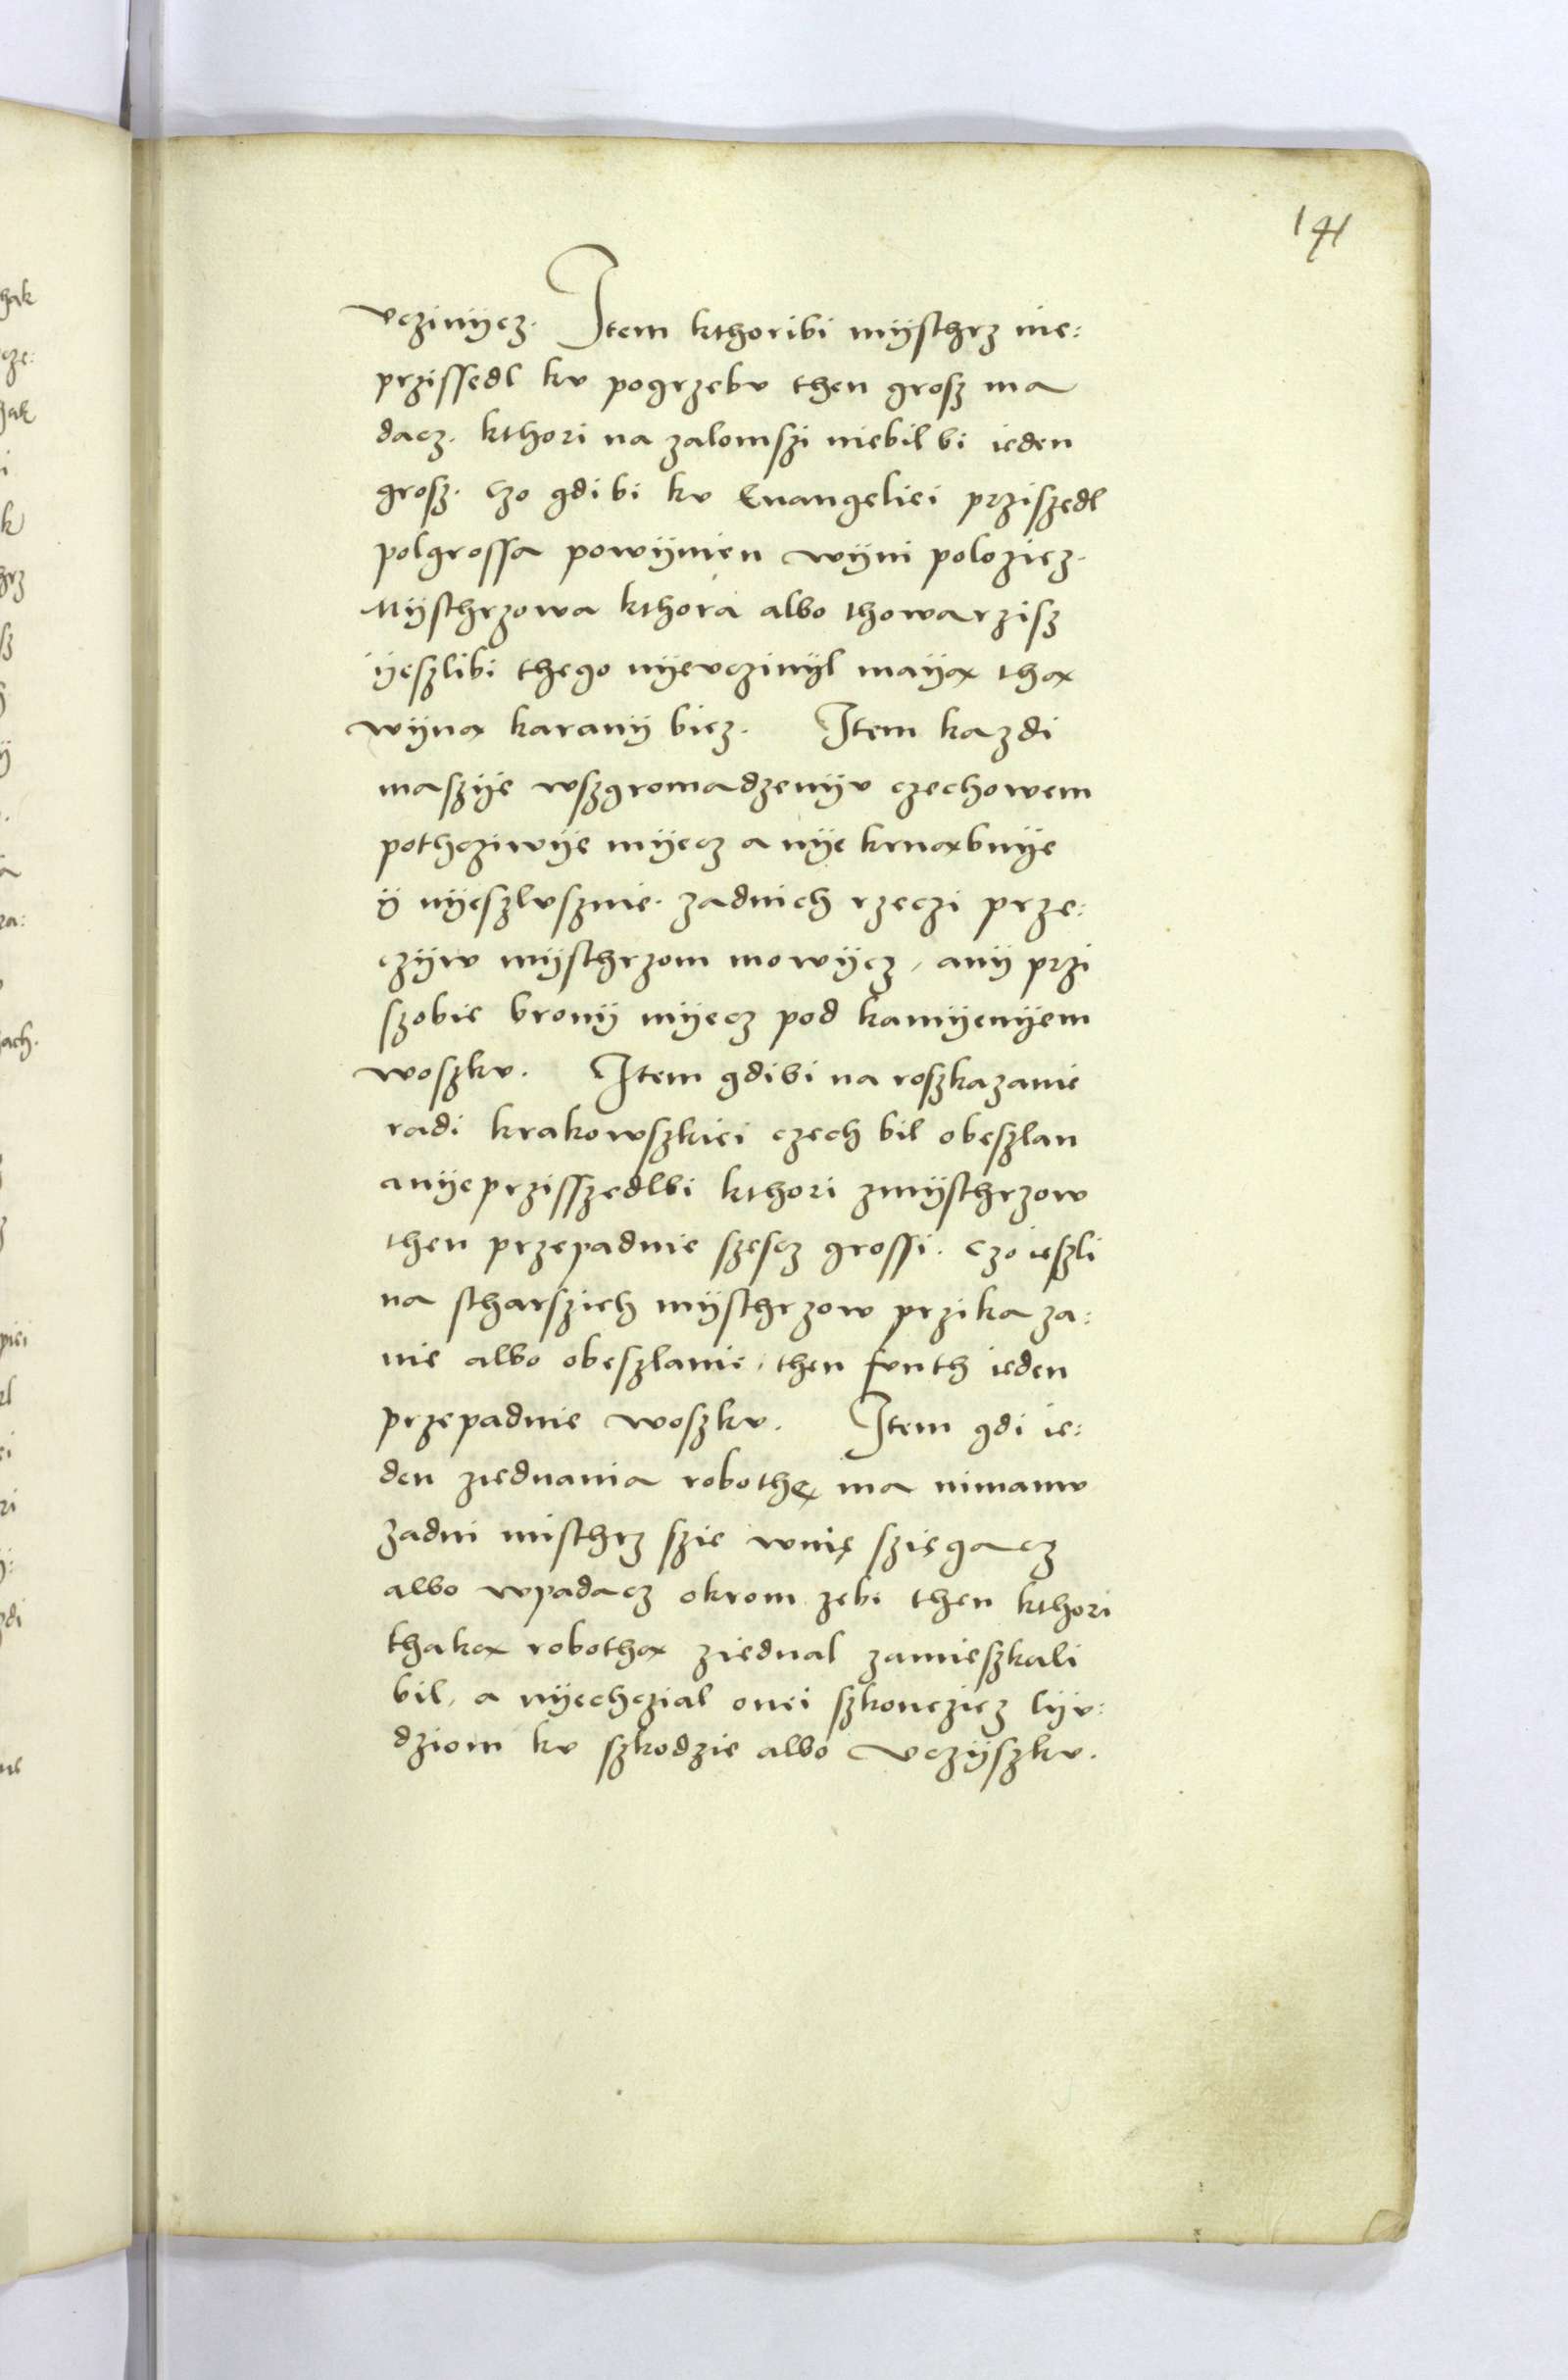 141
vczinÿcz. Item kthoribi mÿsthrz nie:
przissedl kv pogrzebv then grosz ma
dacz. kthori na zalomszi niebil bi ieden
grosz. Czo gdi bi kv Euangeliei prziszedl
polgrossa powÿnien wÿni polozicz.
Mÿsthrzowa kthora albo thowarzisz
ÿeszlibi thego nÿevczinÿl maÿą thą
wÿną karanÿ bicz. Item kazdi
maszÿe wszgromadzenÿv czechowem
pothcziwÿe mÿecz a nÿe krnąbnÿe
ÿ nÿeszlvsznie. zadnich rzeczi prze:
czÿw mÿsthrzom mowÿcz, anÿ przi
szobie bronÿ mÿecz pod kamÿenÿem
woszkv. Item gdibi na roszkazanie
radi krakowszkiei czech bil obeszlan
anÿeprzisszedlbi kthori zmÿsthrzow
then przepadnie szescz grossi. Czo ieszli
na stharszich mÿsthrzow przikaza:
nie albo obeszlanie, then fvnth ieden
przepadnie woszkv. Item gdi ie:
den ziednania robothę ma nimanw
zadni misthrz szie wnię szięgacz
albo wpadacz okrom zebi then kthori
thaką robothą ziednal zamieszkali
bil, a nÿechczial onei szkonczicz lÿv:
dziom kv szkodzie albo vczÿszkv.
hak
cze:
hak
i
k
hrz
sz
ÿ
ach.
piei
ei
ri
gdi
ne